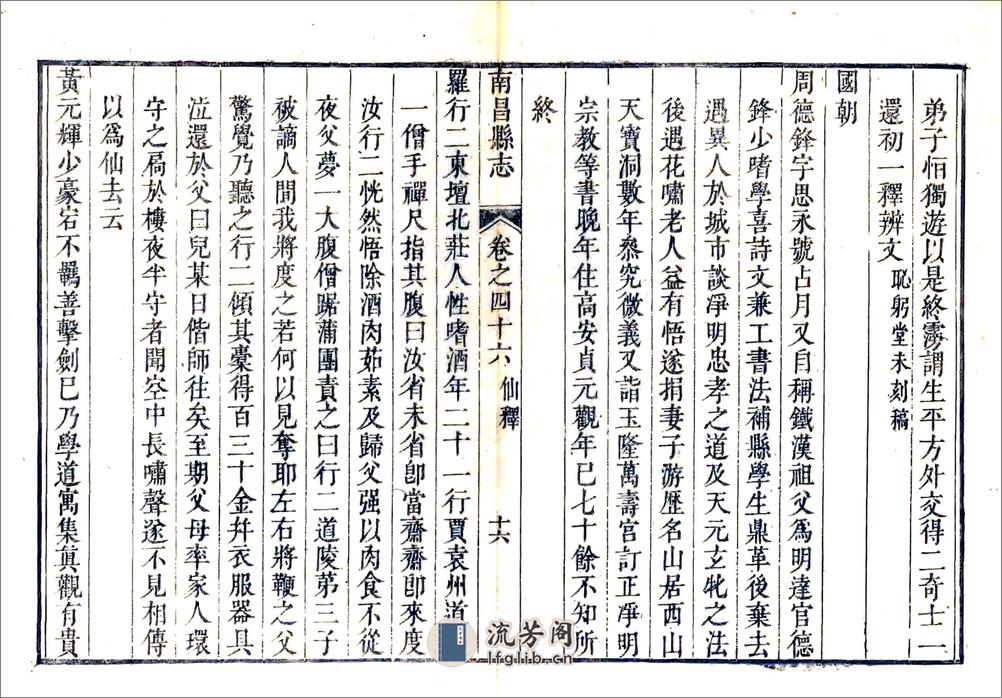 弟子怕獨遊以是終雩謂生平方外交得二奇士一
還初一釋辨文恥躬堂未刻稿
國朝
周德鋒字思永號占月又自稱鐵漢祖父爲明達官德
鋒少嗜學喜詩文兼工書法補縣學生鼎革後棄去
遇異人於城市談淨明忠孝之道及天元玄牝之法
後遇花嘯老人益有悟遂捐妻子游歷名山居西山
天寶洞數年叅究微義又詣玉隆萬壽宮訂正淨明
宗教等書晚年住高安貞元觀年已七十餘不知所
終
南昌縣志 卷之四十六 仙釋 十六
羅行二東壇北莊人性嗜酒年二十一行賈袁州道
一僧手禪尺指其腹曰汝省未省卽當齋齋卽來度
汝行二恍然悟除酒肉茹素及歸父强以肉食不從
夜父夢一大腹僧踞蒲團責之曰行二道陵苐三子
被謫人間我將度之若何以見奪耶左右將鞭之父
驚覺乃聽之行二傾其橐得百三十金幷衣服器具
泣還於父曰兒某日偕師往矣至期父母率家人環
守之扃於樓夜半守者聞空中長嘯聲遂不見相傳
以爲仙去云
黃元輝少豪宕不羈善擊劍已乃學道寓集眞觀有貴
流芳阁
lfglib.cn